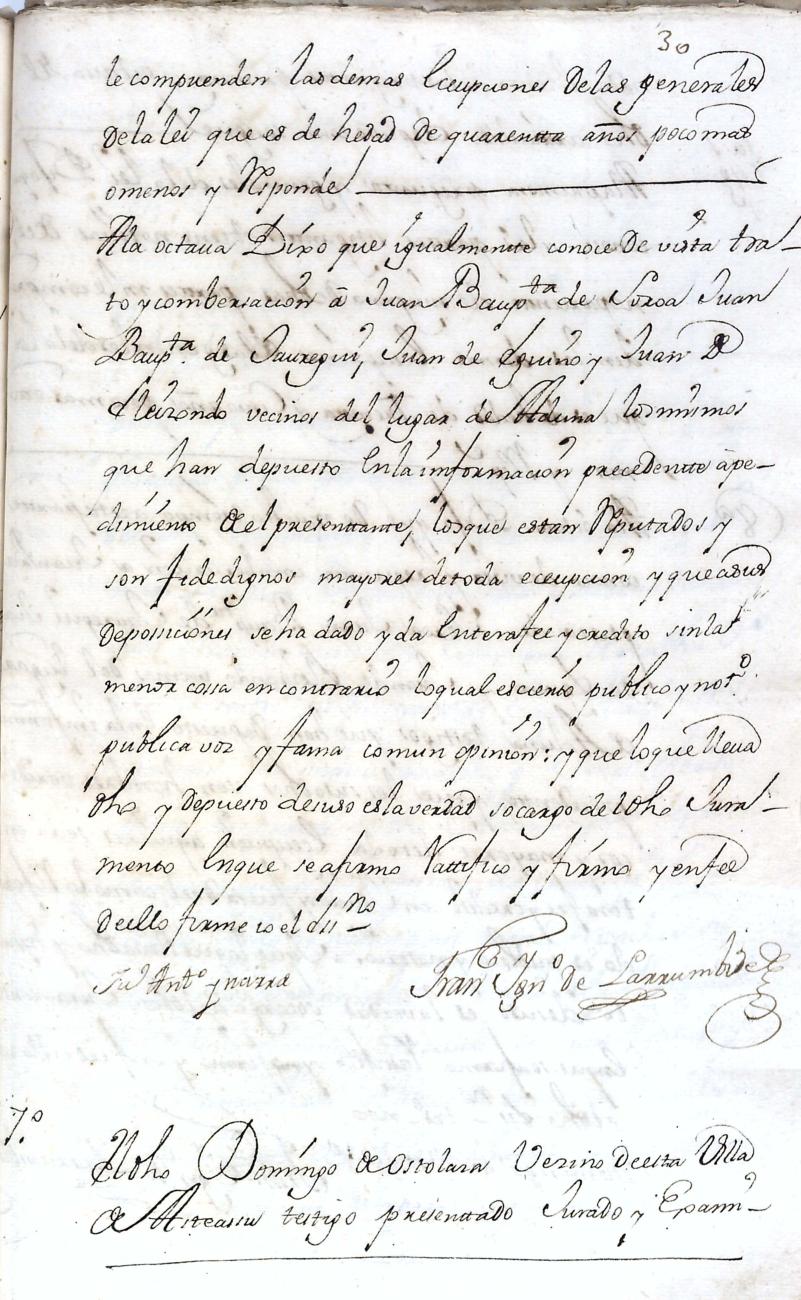 30
le comprenden las demas Ecepciones de las generales
de la lei que es de hedad de quarentta años poco mas
o menos y Responde
A la octava Dixo que igualmentte conoce de vista tra-
to y combersacion a Juan Baupta de Soroa Juan
Baupta de Jauregui, Juan de Eguino y Juan de
Elizondo vecinos del lugar de Aduna los mismos
que han depuesto en la informacion precedentte a pe-
dimiento de el presenttante, los que estan Reputados y
son fidedignos mayores de toda ecepcion y que a sus
deposiciones se ha dado y da entera fee y credito sin la
menor cossa en contrario lo qual es cierto publico y notro
publica voz y fama comun opinion: y que lo que lleva
dho y depuesto de suso es la verdad so cargo del dho Jura-
mento en que se afirmo Rattifico y firmo y en fee
de ello firme io el ssno
Jun Anto Ynarra
Fran Igno de Larrumbide
7o
El dho Domingo de Ostolara Vezino de esta Villa
de Asteassu testigo presenttado Jurado y Exami-